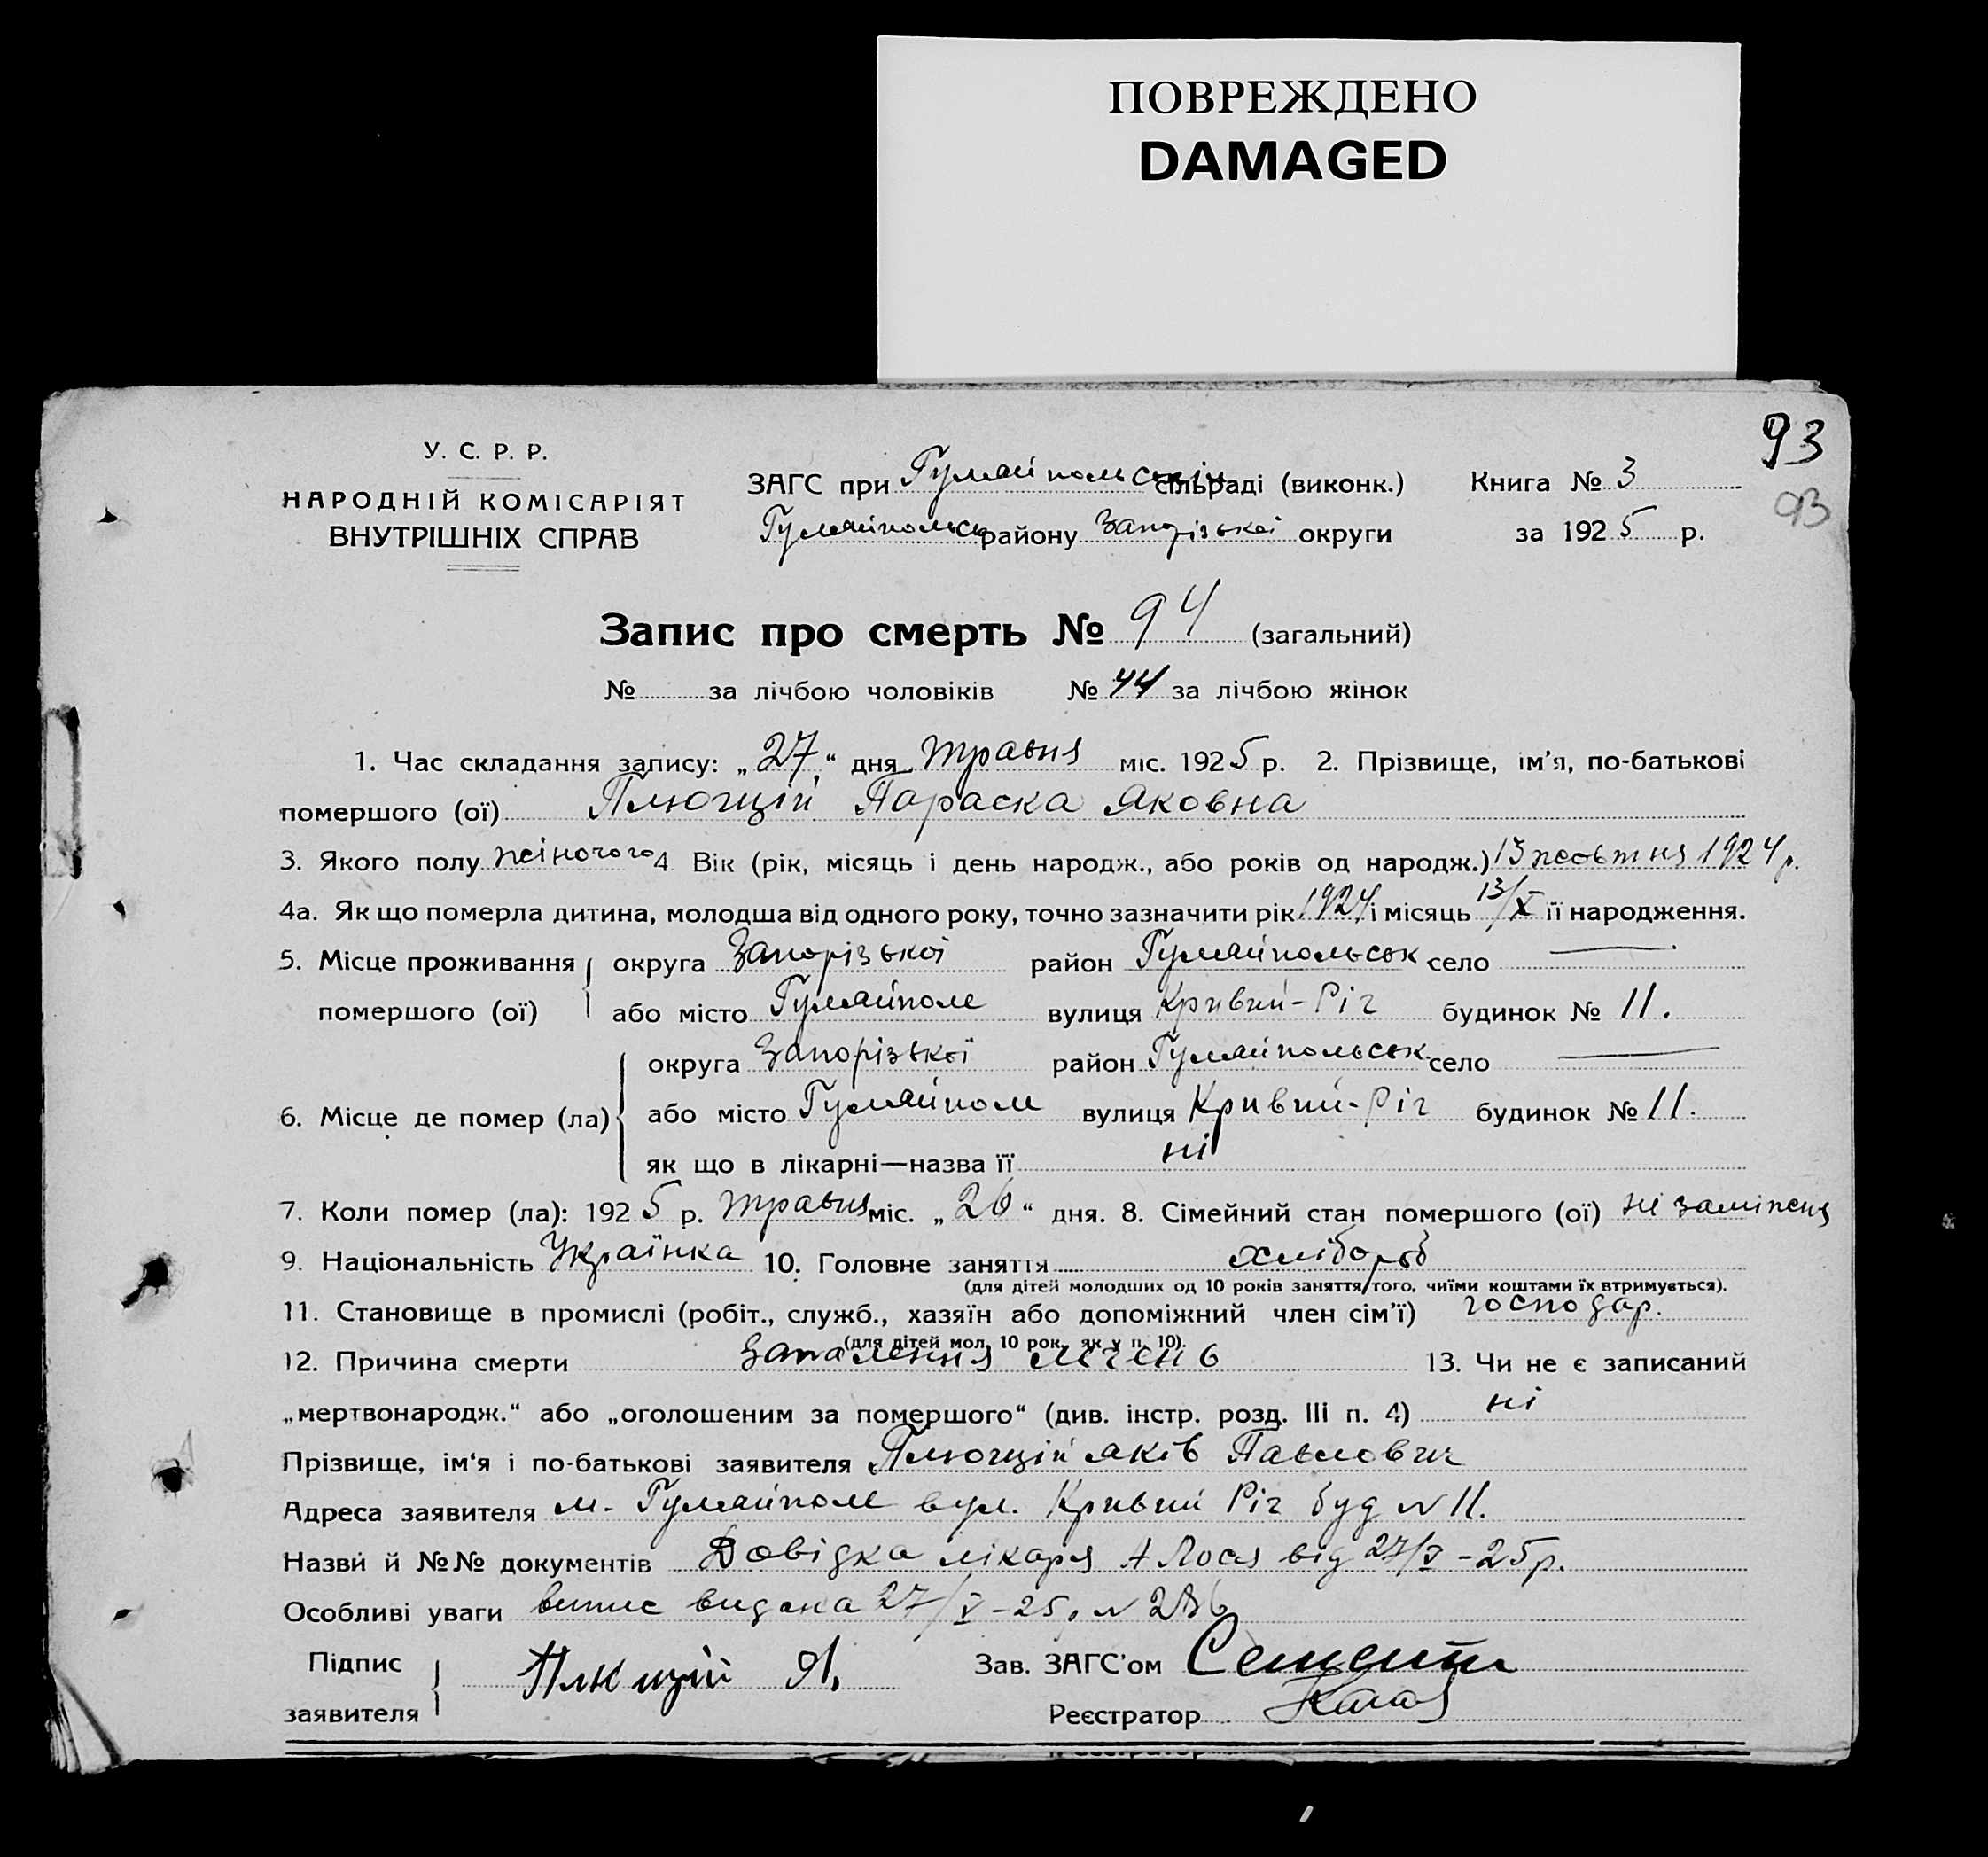 ПОВРЕЖДЕНО
DAMAGED
93
93
У. С. Р. Р.
НАРОДНІЙ КОМІСАРІЯТ
ВНУТРІШНІХ СПРАВ
ЗАГС при Гуляйпольській сільраді (виконк.) Книга № 3
Гуляйпольськ району Запорізької округи за 1925 р.
Запис про смерть № 94 (загальний)
№ за лічбою чоловіків № 44 за лічбою жінок
1. Час складання запису: „27“ дня травня міс. 1925 р. 2. Прізвище, ім’я, по-батькові
помершого (ої) Плющій Параска Яковна
3. Якого полу жіночого 4 Вік (рік, місяць і день народж., або років од народж.) 13 жовтня 1924 р.
4а. Як що померла дитина, молодша від одного року, точно зазначити рік 1924 і місяць 13/X її народження.
5. Місце проживання помершого (ої) округа Запорізької район Гуляйпольськ село —
або місто Гуляйполе вулиця Кривий-Ріг будинок № 11.
6. Місце де помер (ла) округа Запорізької район Гуляйпольськ село —
або місто Гуляйполе вулиця Кривий-Ріг будинок № 11.
як що в лікарні—назва її ні
7. Коли помер (ла): 1925 р. травня міс. „26“ дня. 8. Сімейний стан помершого (ої) ні заміжня
9. Національність Українка 10. Головне заняття хлібороб
(для дітей молодших од 10 років заняття того, чиїми коштами їх втримується).
11. Становище в промислі (робіт., служб., хазяїн або допоміжний член сім’ї) господар.
(для дітей мол. 10 рок. як у п. 10).
12. Причина смерти Запалення легень 13. Чи не є записаний
„мертвонародж.“ або „оголошеним за помершого“ (див. інстр. розд. III п. 4) ні
Прізвище, ім‘я і по-батькові заявителя Плющій Яків Павлович
Адреса заявителя м. Гуляйполе вул. Кривий Ріг буд N 11.
Назви й №№ документів Довідка лікаря А Лося від 27/V-25р.
Особливі уваги випис видана 27/V-25р N
Підпис заявителя Плющій Я. Зав. ЗАГС’ом
Реєстратор